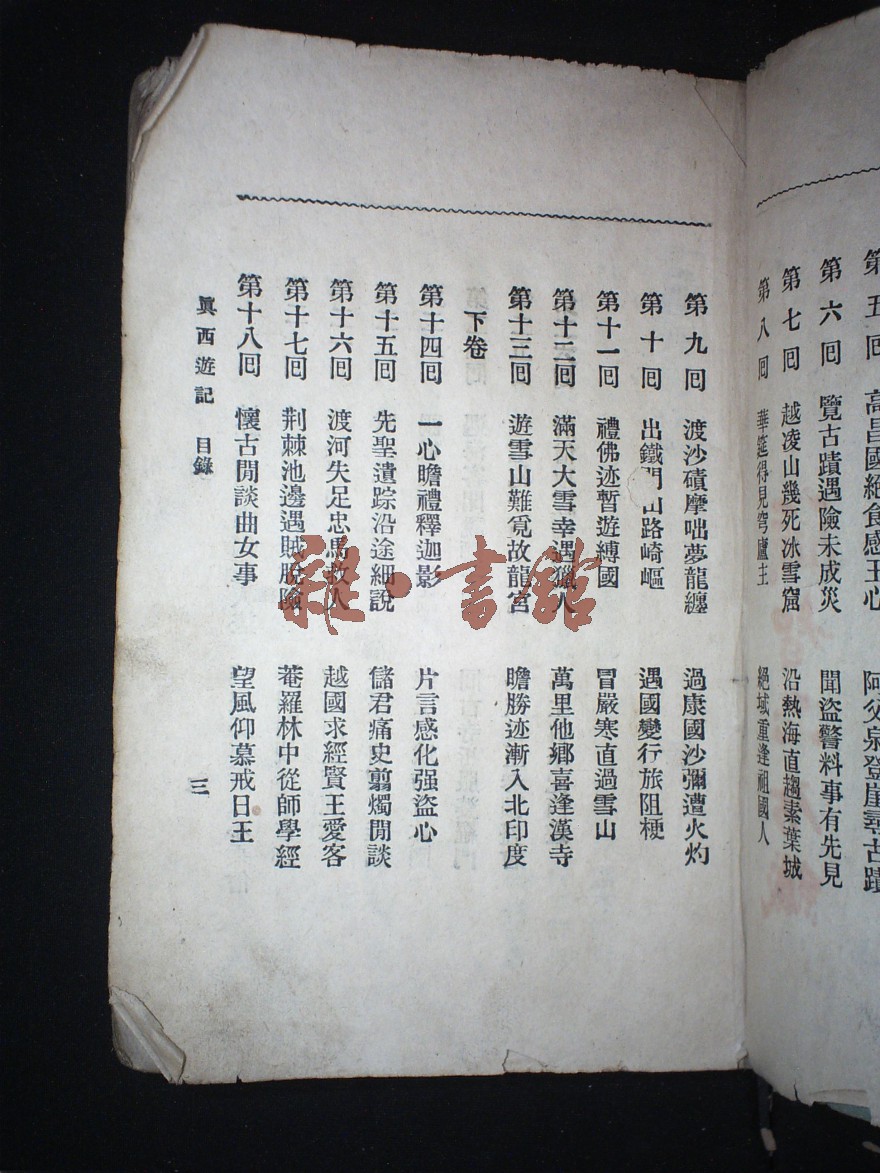 第五囘 高昌國絕食感王心 阿父泉登崖尋古蹟
第六囘 覽古蹟遇險未成災 聞盜警料事有先見
第七囘 越凌山幾死冰雪窟 沿熱海直趨素葉城
第八囘 華筵得見穹廬主 絕域重逢祖國人
第九囘 渡沙磧摩咄夢龍纏 過康國沙彌遭火灼
第十囘 出鐵門山路崎嶇 遇國變行旅阻梗
第十一囘 禮佛迹暫遊縛國 冒嚴寒直過雪山
第十二囘 滿天大雪幸遇獵人 萬里他鄉喜逢漢寺
第十三囘 遊雪山難覓故龍宮 瞻勝迹漸入北印度
下卷
第十四囘 一心瞻禮釋迦影 片言感化强盜心
第十五囘 先聖遺踪沿途細說 儲君痛史翦燭閒談
第十六囘 渡河失足忠馬救人 越國求經賢王愛客
第十七囘 荆棘池邊遇賊脫險 菴羅林中從師學經
第十八囘 懷古閒談曲女事 望風仰慕戒日王
眞西遊記 目錄 三
雜·書館